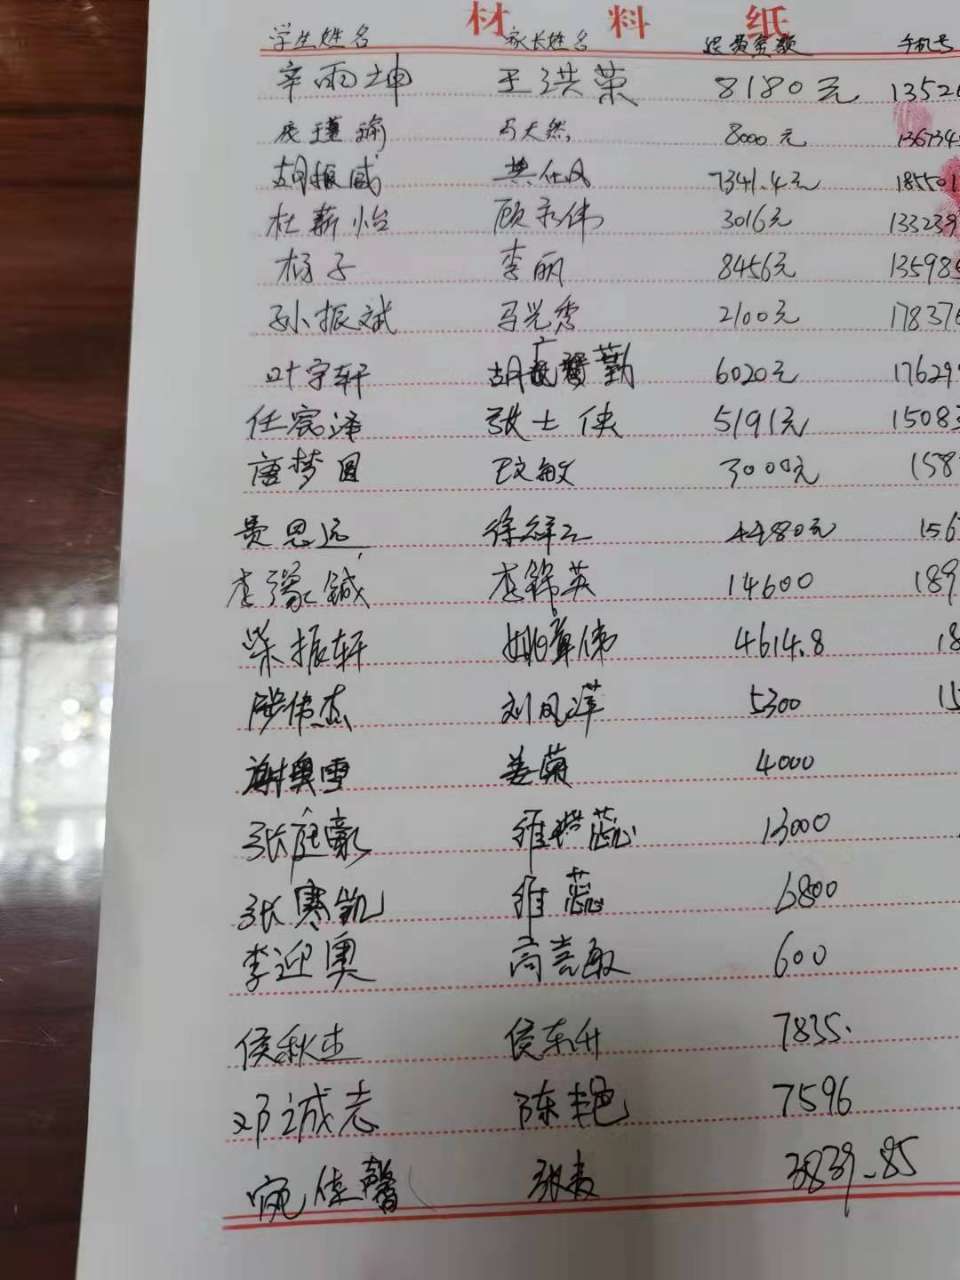 材料纸
学生姓名 家长姓名 退费金额 手机号
辛雨坤 王洪荣 8180元 13526
马天然 8000元 136734
胡振威 7341.4元 185501
杜薪怡 顾永伟 3016元 133239
杨子 李丽 8456元 13598
孙振斌 马兴秀 2100元 17837
叶宇轩 6020元 17629
任宸泽 张士侠 5191元 15083
唐梦圆 王文敏 3000元 158
贵思远 徐祥云 4480元 156
李豫铖 李锦英 14600 189
柴振轩 姚章伟 4614.8 18
滕伟杰 刘凤萍 5300 15
谢奥雪 姜菊 4000
张庭豪 13000
张寒凯 雍蕊 6800
李迎奥 高亮敏 600
侯秋杰 侯东升 7835.
邓诚志 陈艳 7596
宛佳馨 张麦 3839.85